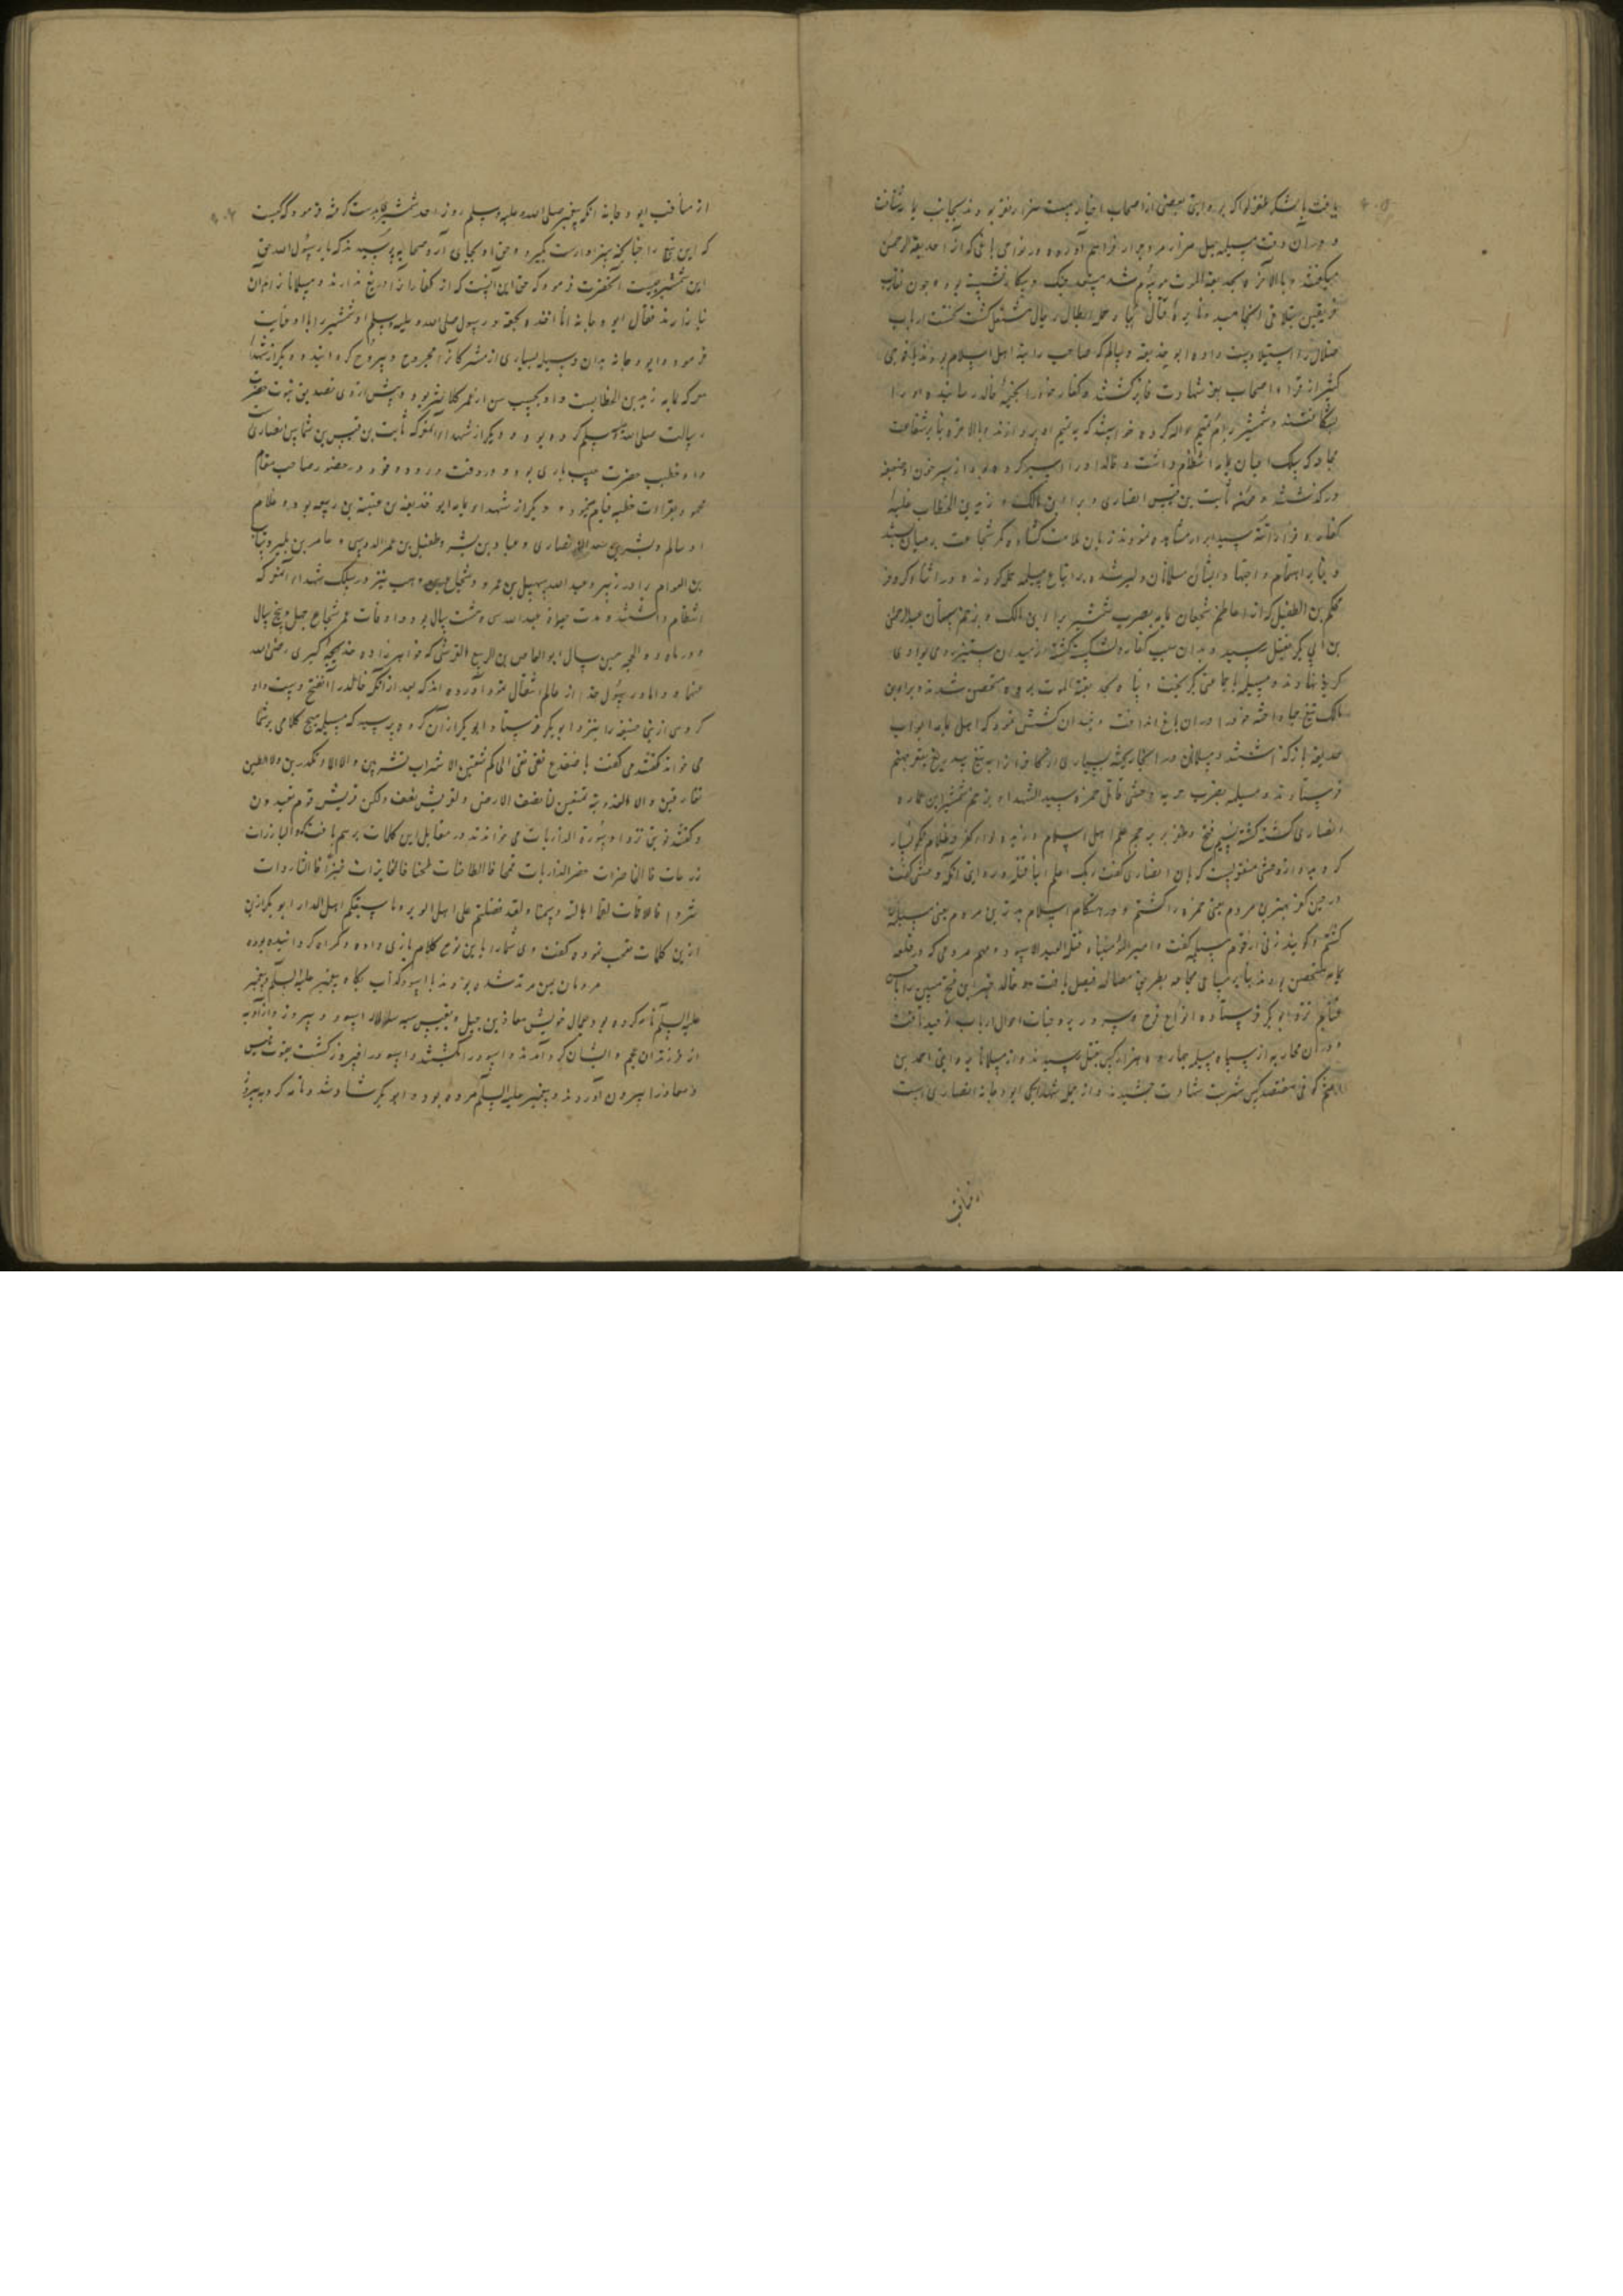 یافت با لشکر ظفر لوا که بروایتی بعضی از اصحاب اخیار بیست هزار نفر بودند بجانب یمامه شتافت
و در آن وقت مسیلمه چهل هزار مرد جرار فراهم آورده در نواحی باغی که آنرا حدیقة الرحمن
میگفتند و بالآخره بحدیقة الموت موسوم شد مستعد جنگ و پیکار نشسته بود و چون تقارب
فریقین بتلاقی انجامید و نایره قتال بباد حمله ابطال رجال مشتعل گشت نخست ارباب
ضلال را استیلا دست داده ابو حذیفه و سالم که صاحب رایت اهل اسلام بودند با فوجی
کثیر از قراء و اصحاب بعز شهادت فایز گشتند و کفار خود را بخیمه خالد رسانیده آنرا
بشکافتند و شمشیر بر ام تمیم حواله کرده خواستند که به تیغ او را بردارند و بالآخره بنابر شفاعت
مجاعه که بسلک اعیان یمامه انتظام داشت و خالد او را اسیر کرده بود از سر خون آن ضعیفه
درگذشتند و چون ثابت بن قیس انصاری و براء بن مالک و زید بن الخطاب غلبه
کفار و فرار اتقیا سید ابرار مشاهده نمودند زبان ملامت گشاده کمر شجاعت بر میان بستند
و بنا بر اهتمام و اجتهاد ایشان مسلمانان دلیر شده بر اتباع مسیلمه حمله کردند و در اثناء کر و فر
محکم بن الطفیل که از اعاظم شجعان یمامه بود بضرب شمشیر براء بن مالک و بزخم سهمان عبدالرحمن
بن ابی بکر بقتل رسید و بدان سبب کفار دل شکسته گشته از میدان ستیز روی بوادی
گریز نهادند و مسیلمه با جماعتی گریخت و پناه بحدیقة الموت برده متحصن شدند و براء بن
مالک تیغ حیا آخته خود را در آن باغ انداخت و چندان کشش نمود که اهل یمامه ابواب
حدیقه باز گذاشتند و مسلمانان در آنجا ریخته بسیاری از مخالفان را به تیغ بیدریغ بقعر جهنم
فرستادند و مسیلمه بضرب حربه وحشی قاتل حمزه سید الشهداء و بزخم شمشیر ابن عماره
انصاری کشته گشته نسیم فتح و ظفر بر پرچم علم اهل اسلام وزید و لواء کفر و ظلام نگونسار
گردید و از وحشی منقولست که بان انصاری گفت ربک اعلم اینا قتله و روایتی آنکه وحشی گفت
در حین کفر بهترین مردم یعنی حمزه را کشتم و در هنگام اسلام بدترین مردم یعنی مسیلمه
کشتم و گویند زنی از قوم مسیلمه گفت وا امیر المؤمنیناه قتله العبد الاسود و مهم مردمی که در قلعه
یمامه متحصن بودند بنا بر مساعی مجاعه بطریق مصالحه فیصل یافت و خالد خبر این فتح مبین را با خمس
غنایم نزد ابوبکر فرستاده انواع فرح و سرور بر وجنات احوال ارباب توحید یافت
و در آن محاربه از سپاه مسیلمه چهارده هزار کس بقتل رسیدند و از مسلمانان بروایتی احمد بن
اعثم کوفی هفتصد کس شربت شهادت چشیدند و از جمله شهدا یکی ابو دجانه انصاری است
از مناقب
از مناقب ابو دجانه آنکه پیغمبر صلی الله علیه وسلم روز احد شمشیری بدست گرفته فرمود که کیست
که این تیغ را چنانچه سزاوارست بگیرد و حق او بجای آرد صحابه پرسیدند که یا رسول الله حق
این شمشیر چیست آنحضرت فرمود که حق این آنست که از کفار آنرا دریغ ندارند و مسلمانان از آن
نیازارند فقال ابو دجانه انا آخذه بحقه و رسول صلی الله علیه وسلم آن شمشیر را باو عنایت
فرمود و ابو دجانه بدان وسیله بسیاری از مشرکان را مجروح و بیروح گردانیده و دیگر از شهدا
معرکه یمامه زید بن الخطابست و او بحسب سن از عمر کلانتر بود و پیش از وی تصدیق نبوت حضرت
رسالت صلی الله علیه وسلم کرده بود و دیگر از شهداء آنمعرکه ثابت بن قیس بن شماس انصاری
و او خطیب حضرت حبیب باری بود و در وقت ورود وفود در حضور صاحب مقام
محمود بقراءت خطبه قیام مینمود و دیگر از شهداء یمامه ابو حذیفه بن عتبة بن ربیعه بود و غلام
او سالم و بشیر بن سعد انصاری و عباد بن بشر و طفیل بن عمرو الدوسی و عامر بن بکیر و سایب
بن العوام برادر زبیر و عبد الله بن سهیل بن عمرو و شجاع بن وهب نیز در سلک شهداء آنمعرکه
انتظام داشتند و مدت حیوة عبد الله سی و هشت سال بود و اوقات عمر شجاع چهل و پنج سال
و در ماه ذو الحجه همین سال ابو العاص بن الربیع القرشی که خواهرزاده خدیجه کبری رضی الله
عنها و داماد رسول خدا از عالم انتقال نمود آورده اند که بعد از آنکه خالد را آن فتح دست داد
گروهی از بنی حنیفه را بنزد ابوبکر فرستاد و ابوبکر از آن گروه پرسید که مسیلمه هیچ کلامی بر شما
می خواند گفتند می گفت یا ضفدع نقی نقی الی کم تنقین لا شراب تشربین و لا الماء تکدرین و لا الطین
تفارقین و لا العذوبة تمنعین لنا نصف الارض و لقریش نصف ولکن قریش قوم یعتدون
و گفتند فوجی نزد او سورة الذاریات می خواندند در مقابل این کلمات بر هم بافت که و البازرات
زرعات فالحاصدات حصدا و الذاریات قمحا فالطاحنات طحنا فالخابزات خبزا فالثاردات
ثردا فاللاقمات لقما اهالة و سمنا و لقد فضلتم علی اهل الوبر و ما سبقکم اهل المدر ابوبکر از ین
ازین کلمات متعجب نموده گفت وی شما را باین نوع کلام بازی داده و گمراه گردانیده بوده
مردمان یمن مرتد شده بودند با اسود کذاب بگاه پیغمبر علیه السلم و پیغمبر
علیه السلم نامه کرده بود و عمال خویش معاذ بن جبل و قیس اسود و فیروز و دادویه
از فرزندان عجم و ایشان گرد آمدند و اسود را بکشتند و اسود را فیروز گشت چون قیس
و معاذ را بیرون آوردند و پیغمبر علیه السلم مرده بود و ابوبکر شاد شد و نامه کرد به فیروز